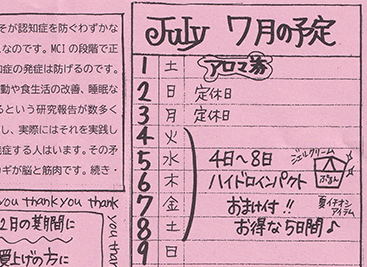 そが認知症を防ぐわずかな
なのです。MCI の段階で正
知症の発症は防げるのです。
動や食生活の改善、睡眠な
るという研究報告が数多く
し、実際にはそれを実践し
症する人はいます。その矛
カギが脳と筋肉です。続き・
you thank you thank
you thank
2月の期間に
買上げの方に
July 7月の予定
1 土 アロマ券
2 日 定休日
3 月 定休日
4 火
5 水 4日~8日
6 木 ハイドロインパクト
7 金 おまけ付!!
8 土 お得な5日間♪
9 日
ジェルクリーム
夏イチオシ
アイテム